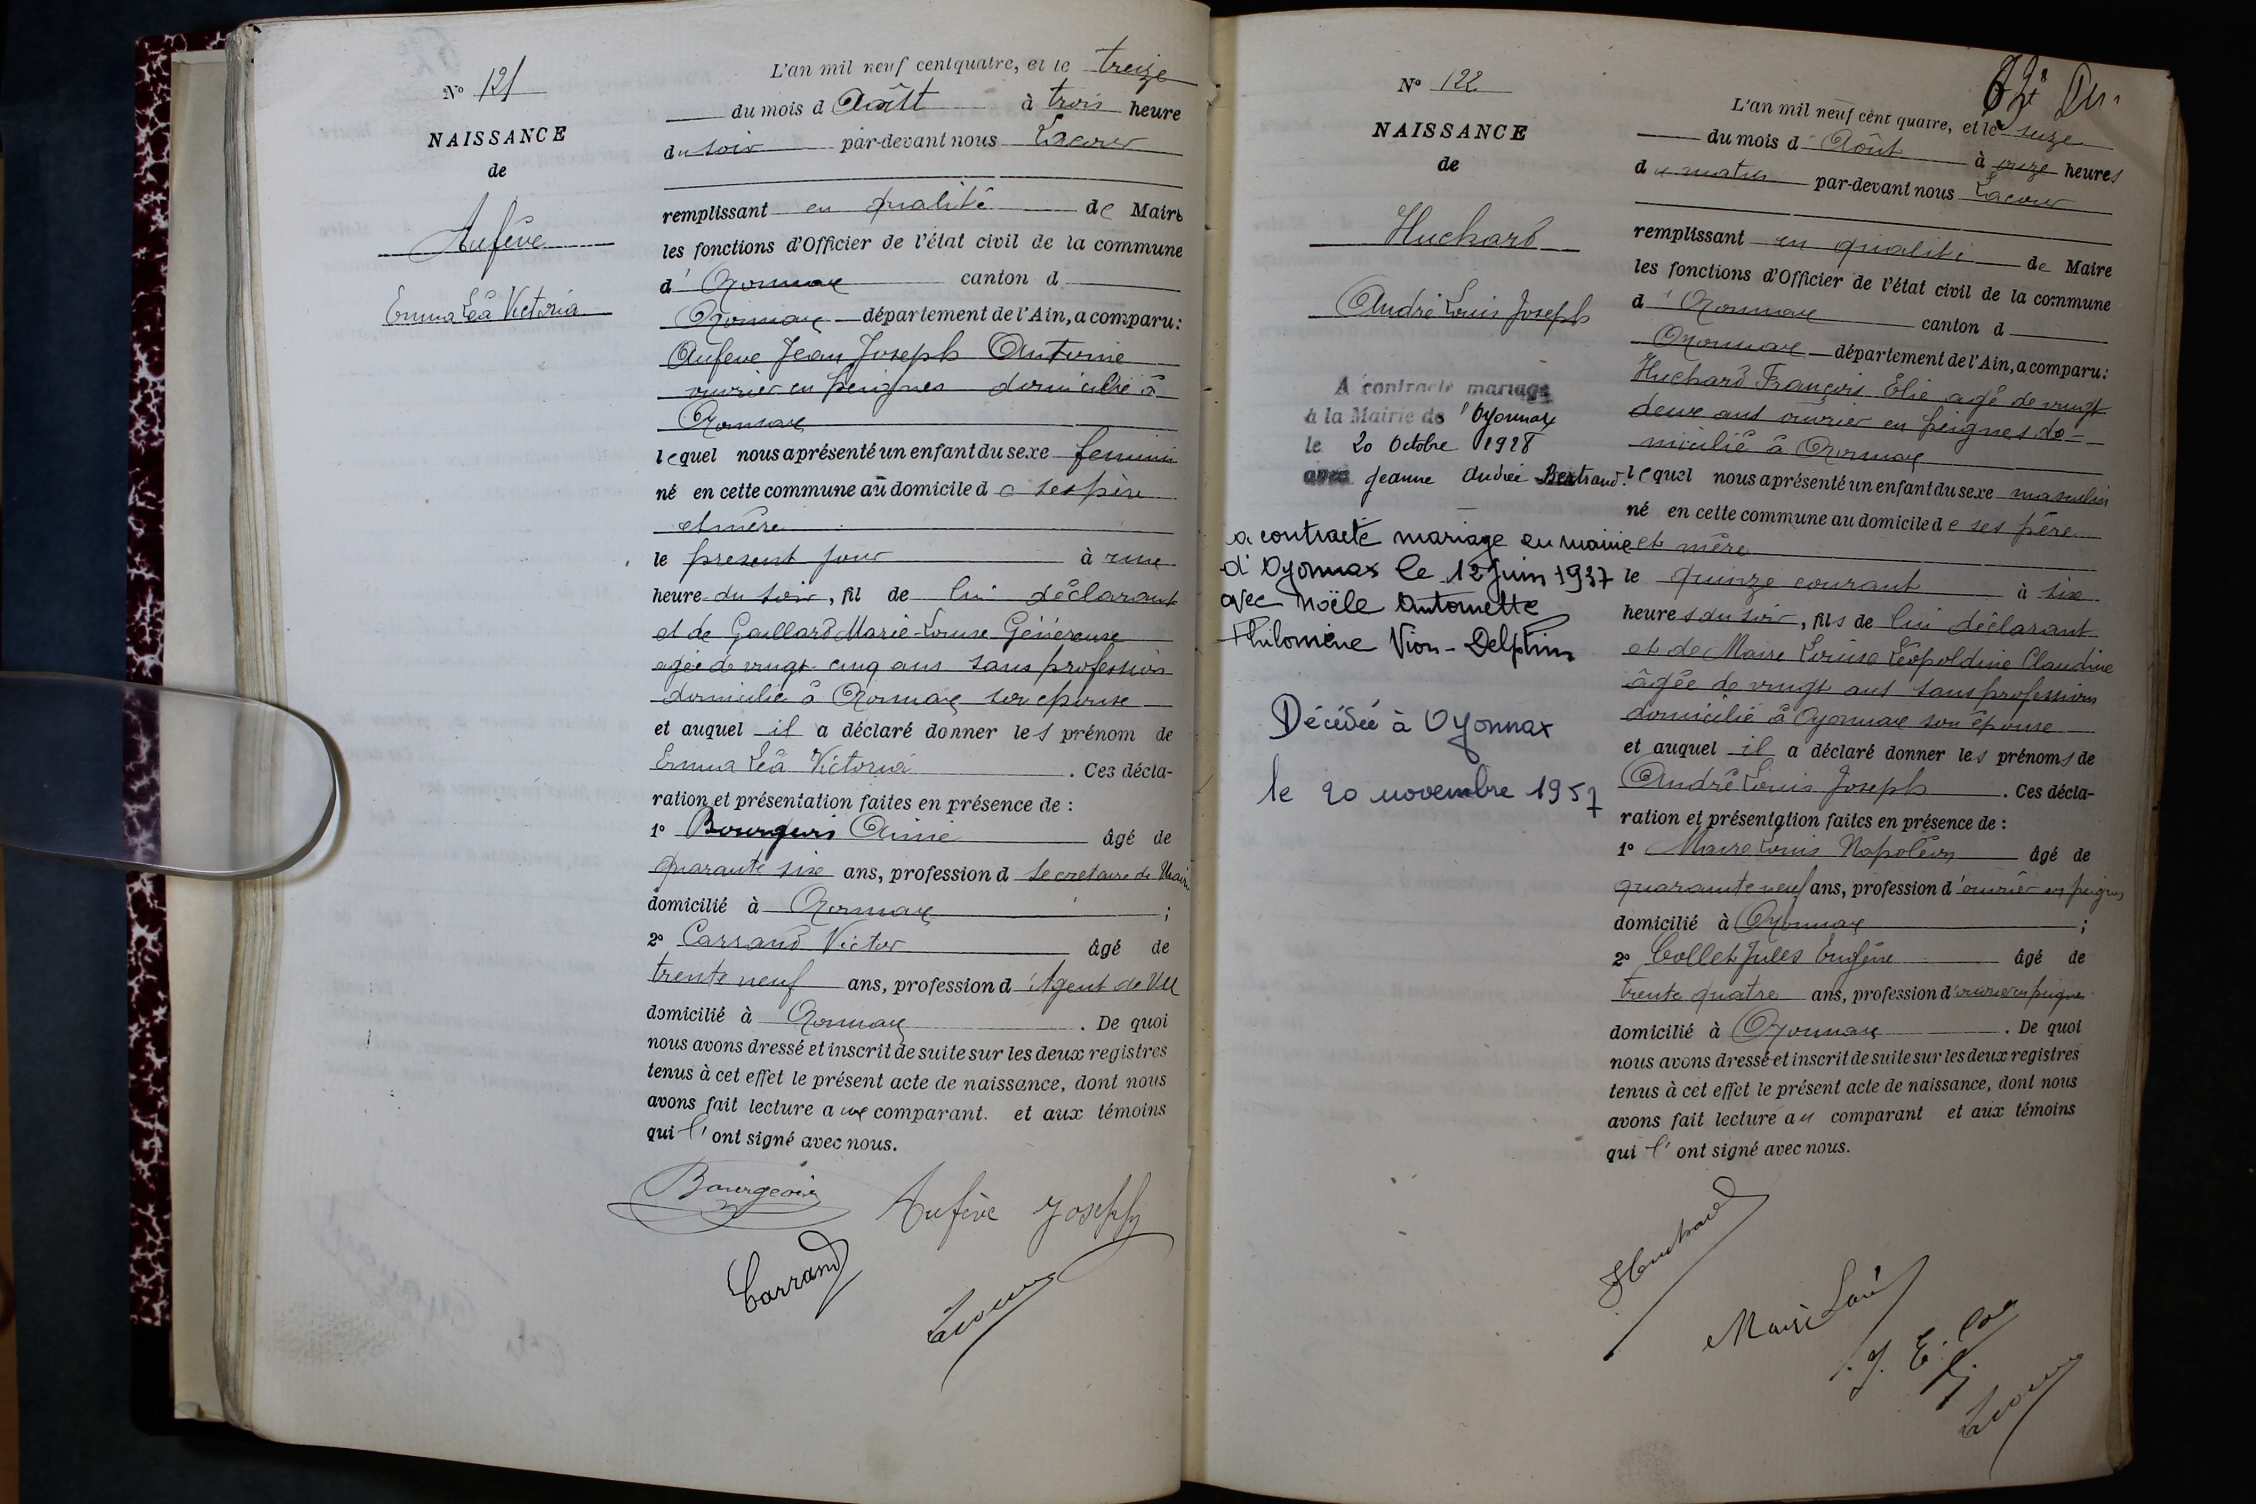 N° 121
NAISSANCE
de
Aufève
Emma Léa Victoria
L'an mil neuf cent quatre, et le treize
du mois d Août à trois heure
du soir par-devant nous Lacour
remplissant en qualité de Maire
les fonctions d'Officier de l'état civil de la commune
d' Oyonnax canton d
Oyonnax département de l'Ain, a comparu :
Aufeve Jean Joseph Antoine
ouvrier en peignes domicilié à
Oyonnax
lequel nous a présenté un enfant du sexe feminin
né en cette commune au domicile d e ses père
et mère
le present jour à une
heure du soir, fil de lui déclarant
et de Gaillard Marie-Louise Généreuse
agée de vingt-cinq ans sans profession
domicilié à Oyonnax son epouse
et auquel il a déclaré donner les prénom de
Emma Léa Victoria . Ces décla-
ration et présentation faites en présence de :
1° Bourgeois Aimé âgé de
quarante six ans, profession d secretaire de Mairie
domicilié à Oyonnax ;
2° Carrand Victor âgé de
trente neuf ans, profession d 'Agent de Ville
domicilié à Oyonnax . De quoi
nous avons dressé et inscrit de suite sur les deux registres
tenus à cet effet le présent acte de naissance, dont nous
avons fait lecture a comparant. et aux témoins
qui l' ont signé avec nous.
Bourgeois Aufève Joseph
Carrand
Lacour
N° 122
NAISSANCE
de
Huchard
André Louis Joseph
A contracté mariage
à la Mairie de l'Oyonnax
le 20 Octobre 1928
avec Jeanne Andrée Bertrand.
a contracté mariage en mairie
d'Oyonnax le 12 Juin 1937
avec Noële Antoinette
Philomène Vion-Delphin
Décédée à Oyonnax
le 20 novembre 1957
L'an mil neuf cent quatre, et le seize
du mois d Août à onze heures
du matin par-devant nous Lacour
remplissant en qualité de Maire
les fonctions d'Officier de l'état civil de la commune
d' Oyonnax canton d
Oyonnax département de l'Ain, a comparu :
Huchard François Elie agé de vingt
deux ans ouvrier en peignes do-
micilié à Oyonnax
lequel nous a présenté un enfant du sexe masculin
né en cette commune au domicile d e ses père
et mère
le quinze courant à six
heures du soir, fils de lui déclarant
et de Maire Louise Léopoldine Claudine
âgée de vingt ans sans profession
domicilié à Oyonnax son épouse
et auquel il a déclaré donner les prénoms de
André Louis Joseph . Ces décla-
ration et présentation faites en présence de :
1° Maire Louis Napoléon âgé de
quarante neuf ans, profession d'ouvrier en peignes
domicilié à Oyonnax ;
2° Collet Jules Eugène âgé de
trente quatre ans, profession d'ouvrier en peignes
domicilié à Oyonnax . De quoi
nous avons dressé et inscrit de suite sur les deux registres
tenus à cet effet le présent acte de naissance, dont nous
avons fait lecture au comparant et aux témoins
qui l' ont signé avec nous.
Huchard
Maire Louis
J. E. Col
Lacour